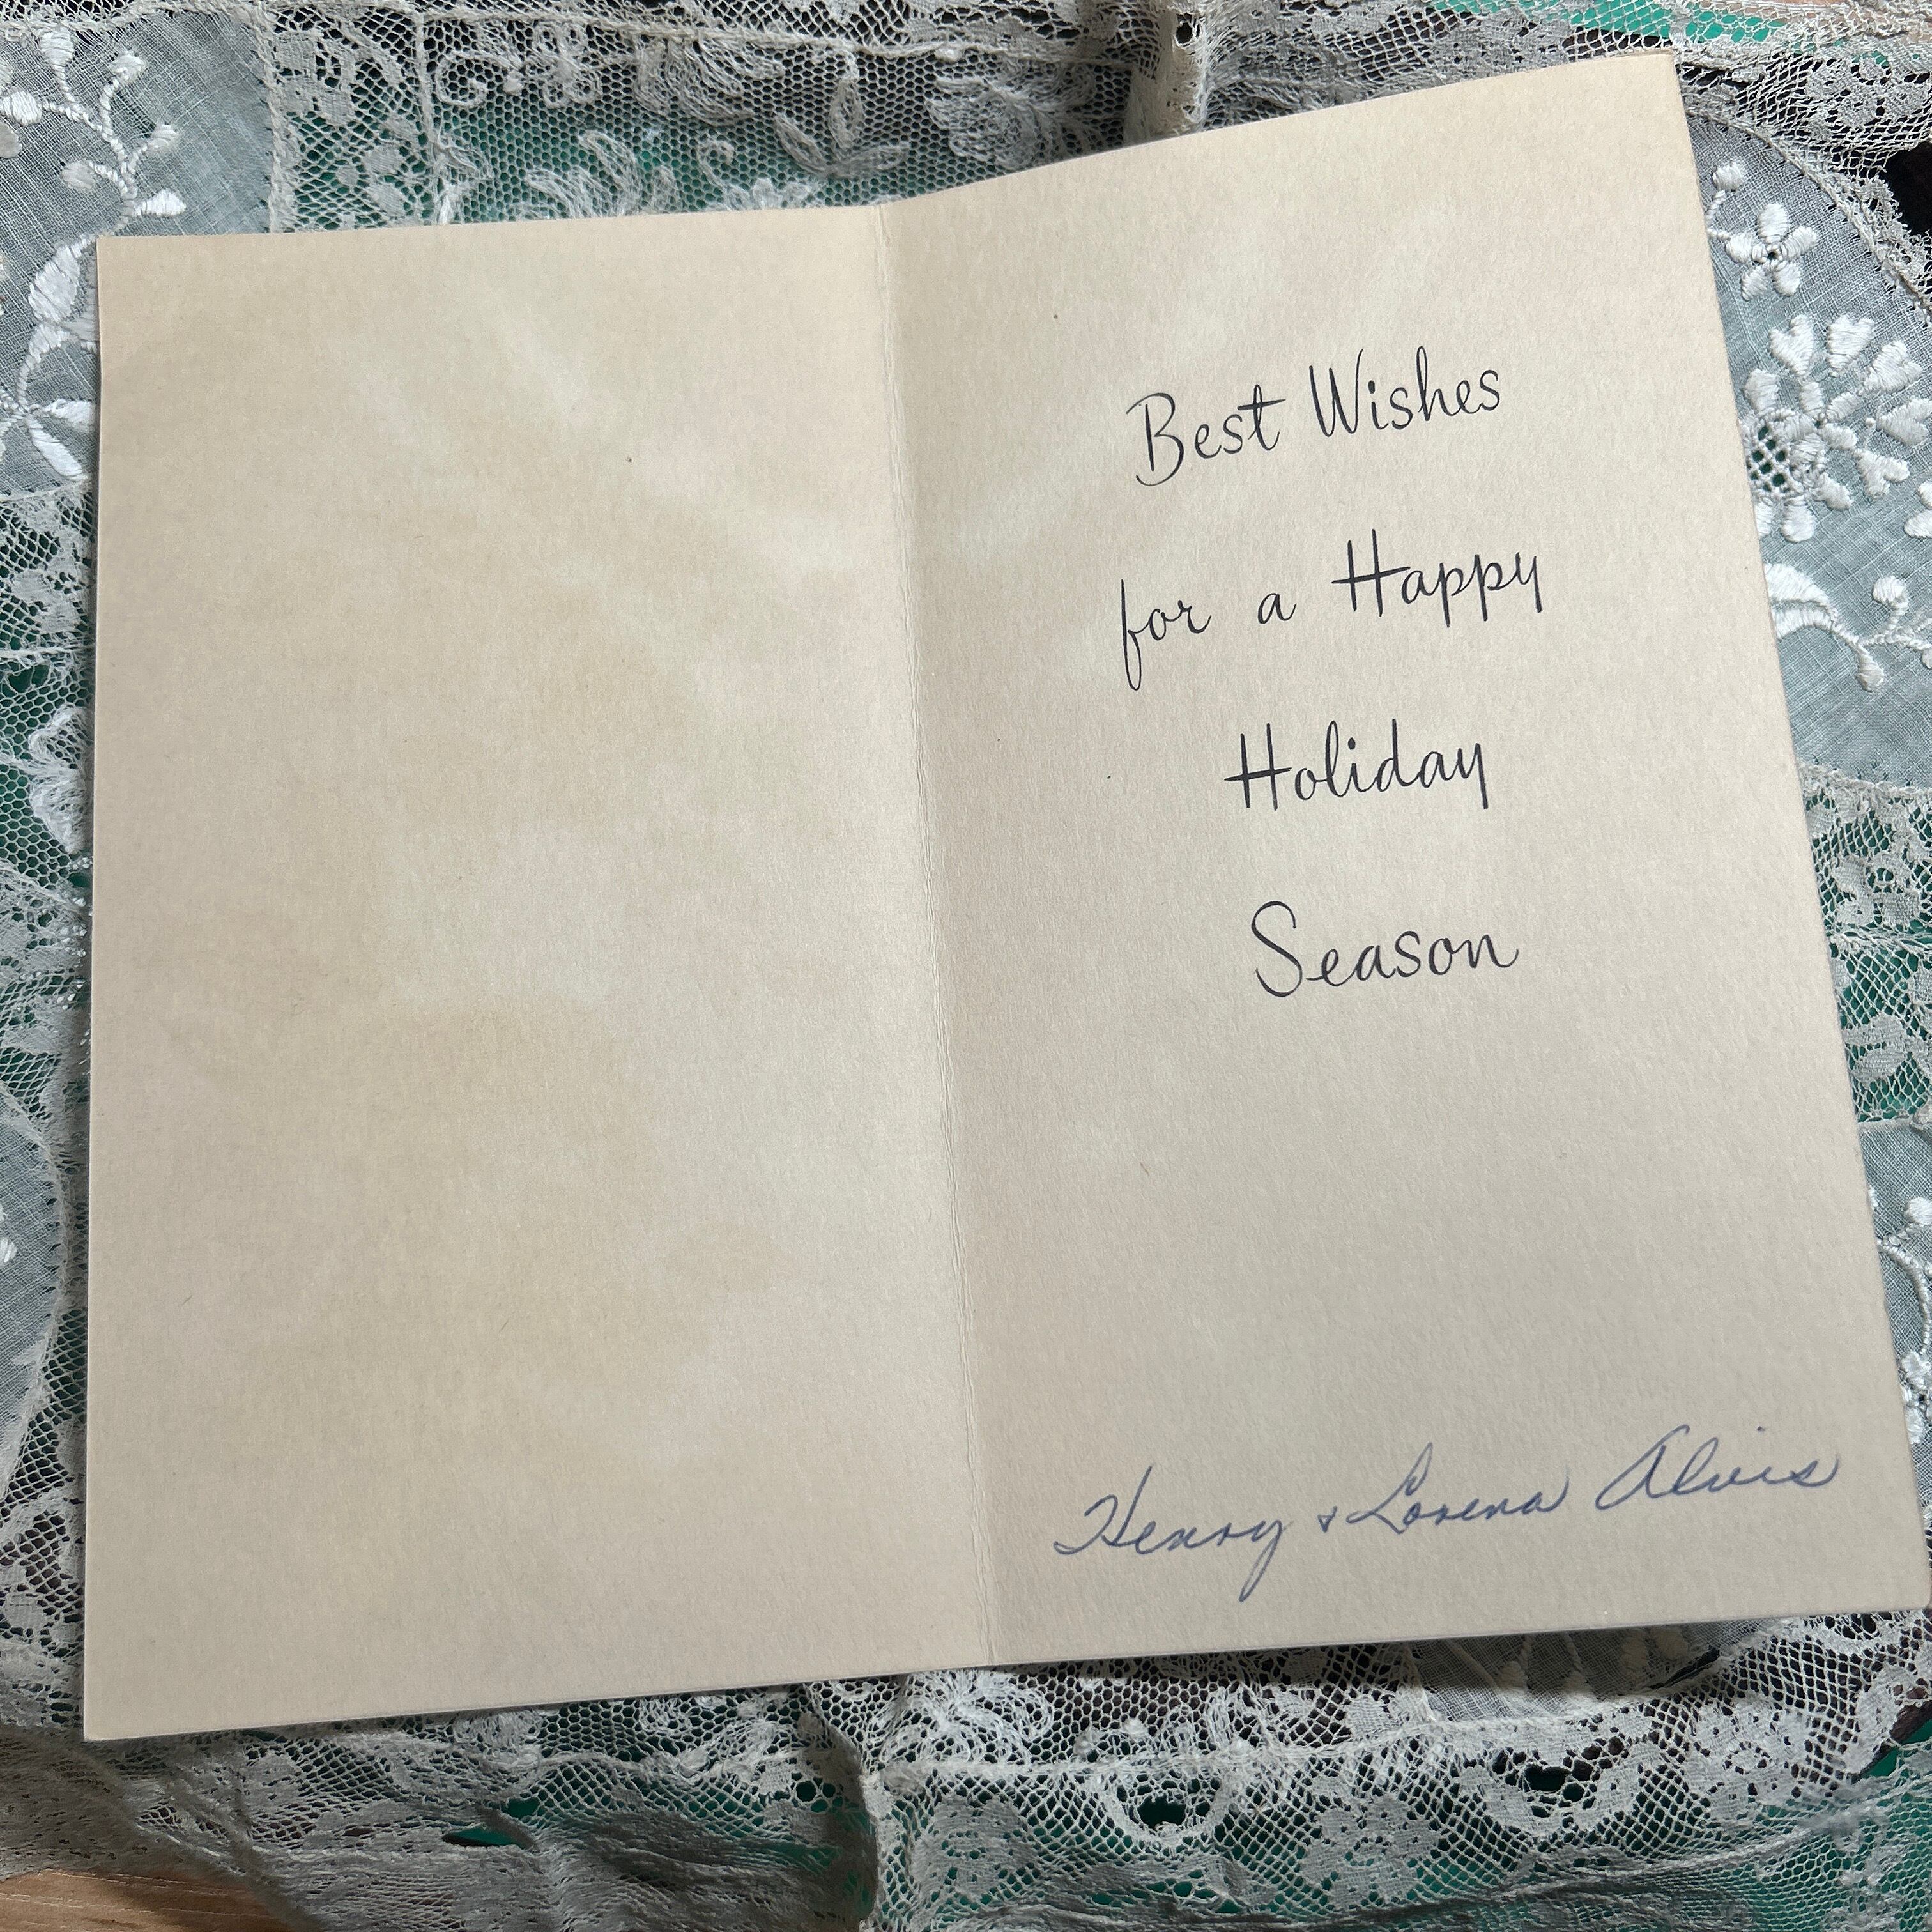 Best Wishes
for a Happy
Holiday
Season
Henry & Lorena Alvis